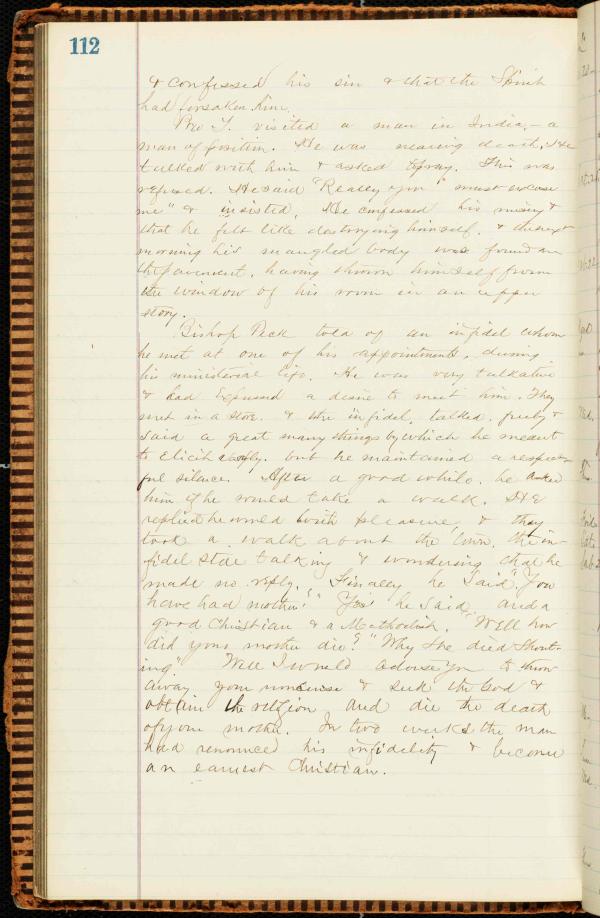 112
& confessed his sin & that the Spirit
had forsaken him.
Bro T. visited a man in India, - a
man of position. He was nearing death. He
talked with him & asked to pray. This was
refused. He said "Really you must excuse
me" & insisted. He confessed his misery &
that he felt like destroying himself, & the next
morning his mangled body was found on
the pavement, having thrown himself from
the window of his room in an upper
story.
Bishop Peck told of an infidel whom
he met at one of his appointments, during
his ministerial life. He was very talkative
& had expressed a desire to meet him. They
met in a store. & the infidel, talked, freely &
said a great many things by which he meant
to elicit a reply. but he maintained a respect-
ful silence. After a good while, he asked
him if he would take a walk. He
replied he would with pleasure, & they
took a walk about the town, the in-
fidel still talking & wondering that he
made no reply. Finaley he said "You
have had mother?" "Yes" he said, and a
good Christian & a Methodist. "Well how
did your mother die?" "Why she died shout-
ing". Well I would advise you to throw
away your nonsense & seek the God &
obtain the religion and die the death
of your mother. In two weeks the man
had renounced his infidelity & become
an earnest Christian.